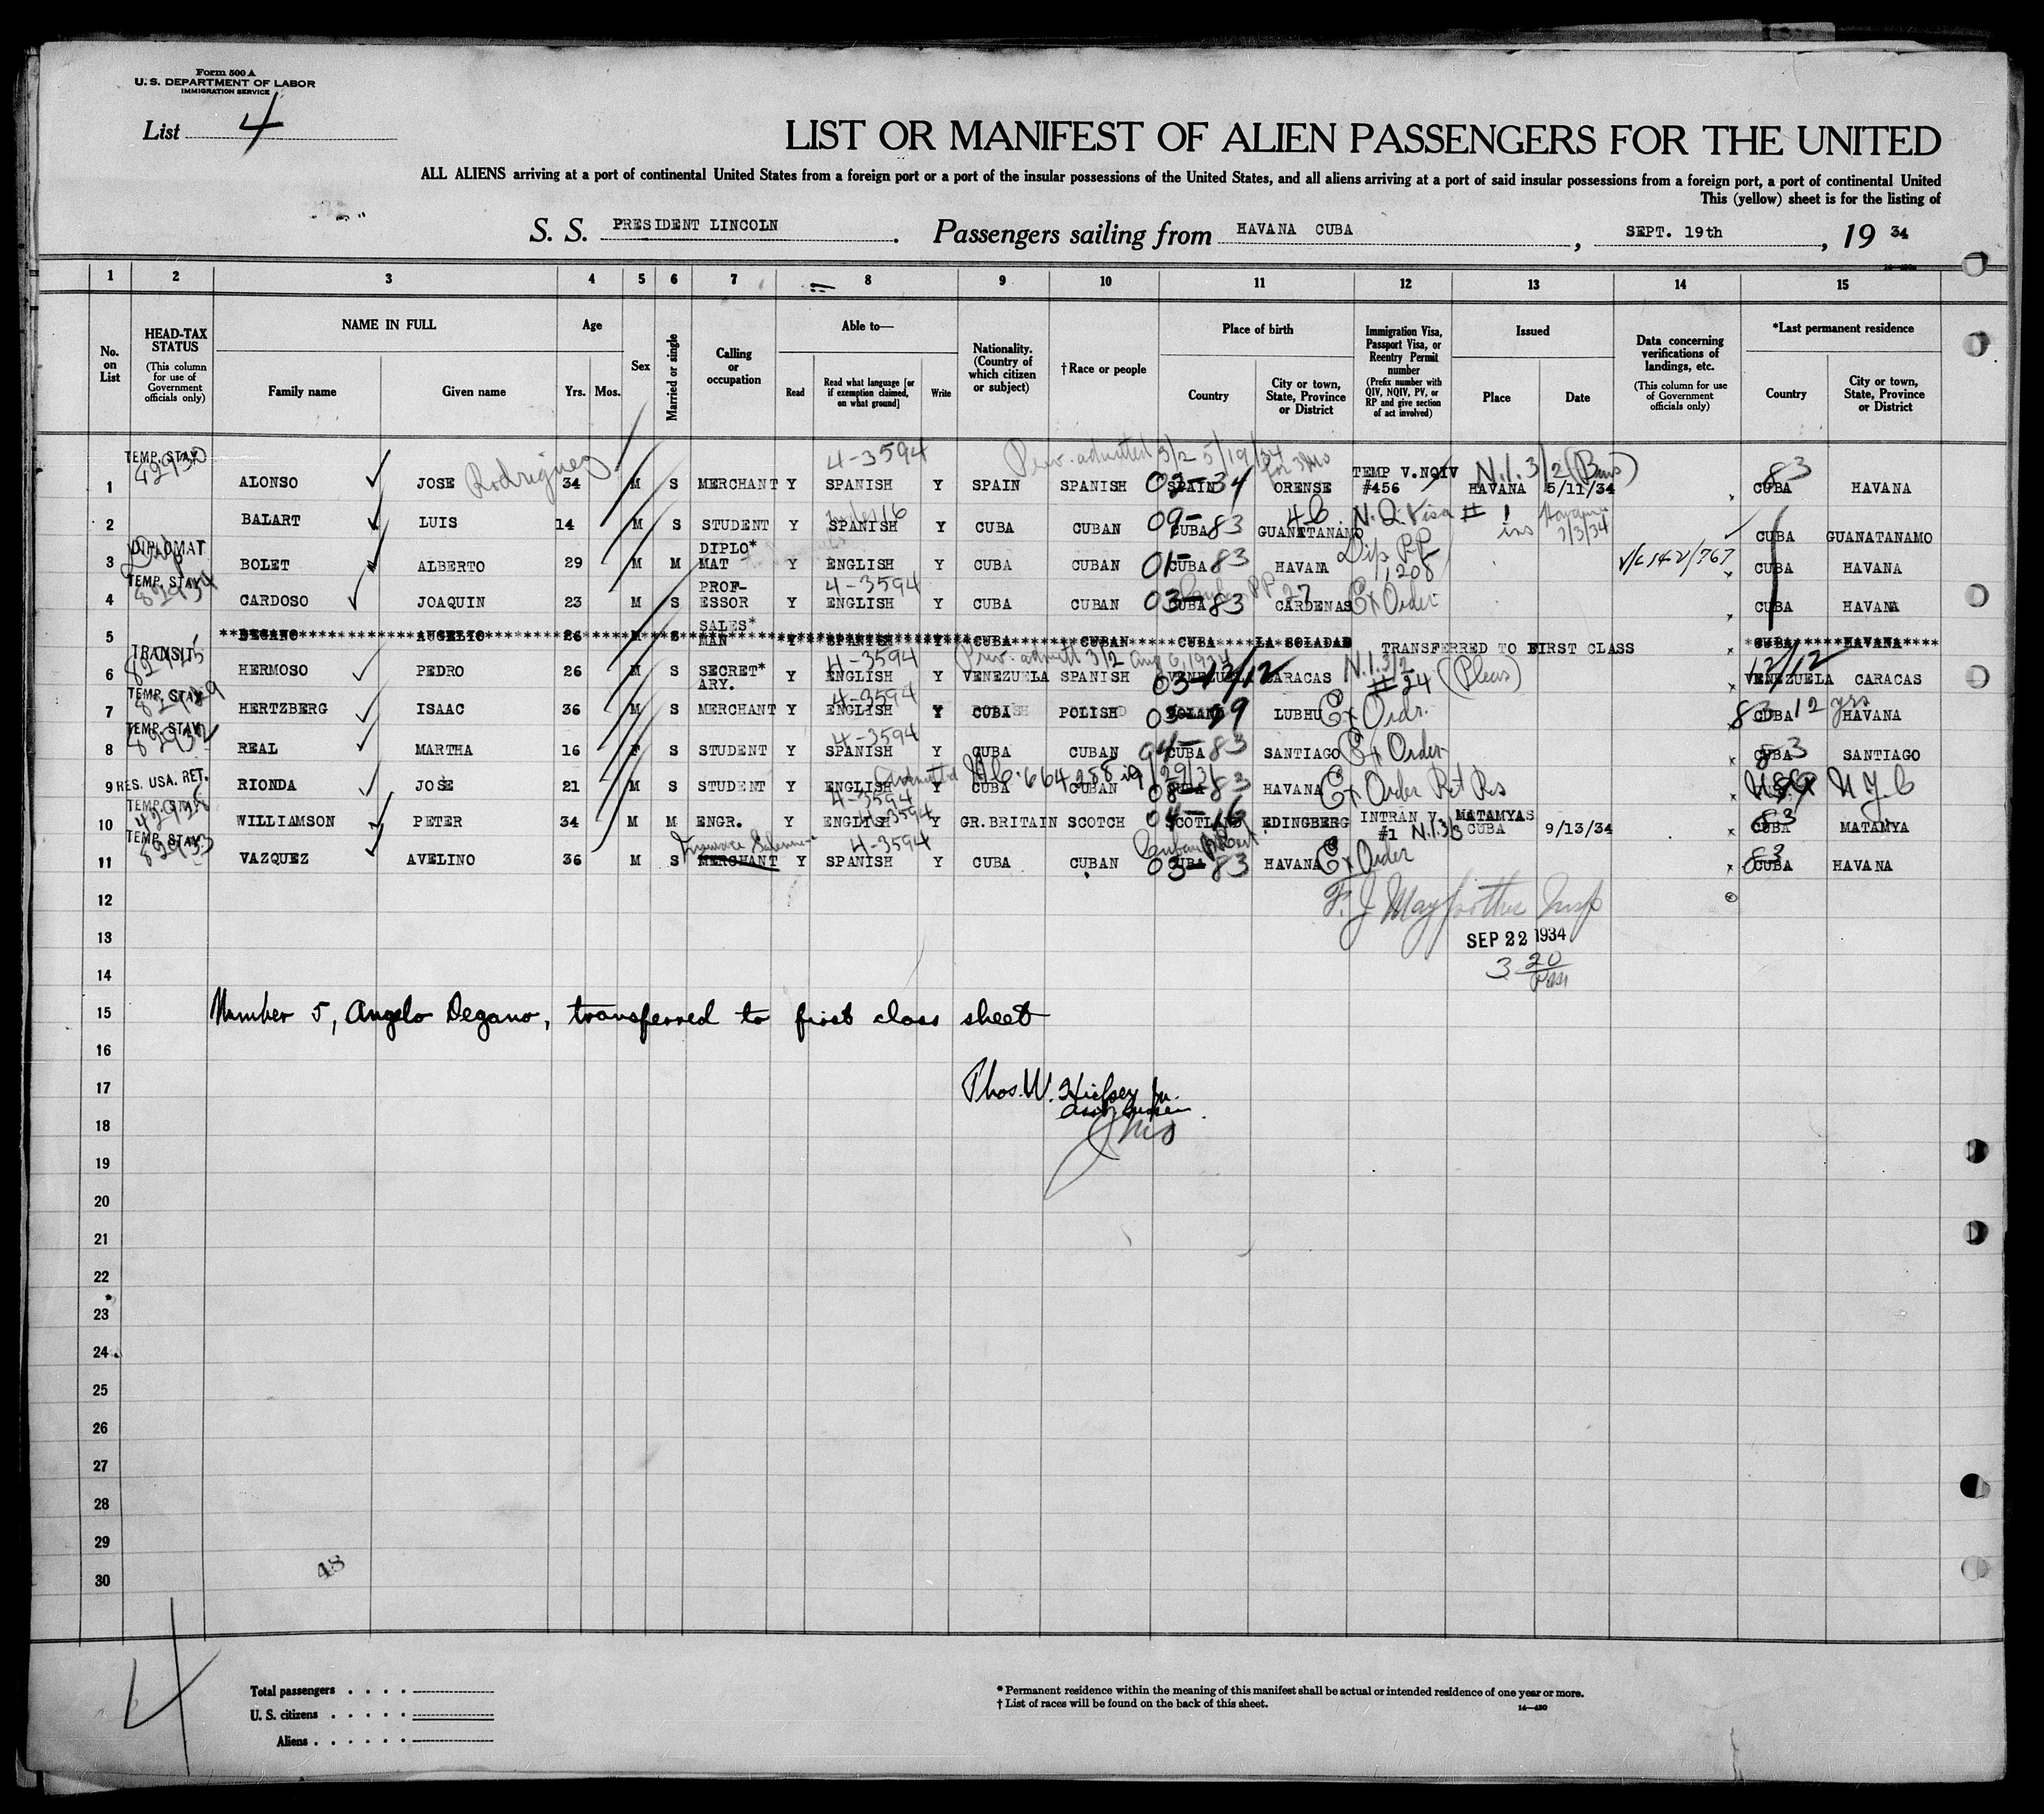 Form 500 A
U. S. DEPARTMENT OF LABOR
IMMIGRATION SERVICE
List 4
LIST OR MANIFEST OF ALIEN PASSENGERS FOR THE UNITED
ALL ALIENS arriving at a port of continental United States from a foreign port or a port of the insular possessions of the United States, and all aliens arriving at a port of said insular possessions from a foreign port, a port of continental United
This (yellow) sheet is for the listing of
S. S. PRESIDENT LINCOLN. Passengers sailing from HAVANA CUBA, SEPT. 19th, 19 34
1 2 3 4 5 6 7 8 9 10 11 12 13 14 15
No. on List
HEAD-TAX STATUS (This column for use of Government officials only)
NAME IN FULL Family name Given name
Age Yrs. Mos.
Sex
Married or single
Calling or occupation
Able to— Read Read what language [or if exemption claimed, on what ground] Write
Nationality. (Country of which citizen or subject)
†Race or people
Place of birth Country City or town, State, Province or District
Immigration Visa, Passport Visa, or Reentry Permit number (Prefix number with QIV, NQIV, PV, or RP and give section of act involved)
Issued Place Date
Data concerning verifications of landings, etc. (This column for use of Government officials only)
*Last permanent residence Country City or town, State, Province or District
4-3594 Prev. admitted 3/2 5/19/34 for 3 Mos
1 TEMP. STAY ALONSO JOSE Rodriguez 34 M S MERCHANT Y SPANISH Y SPAIN SPANISH SPAIN ORENSE TEMP V. NQIV #456 N.I. 3/2 (Bus) HAVANA 5/11/34 83 CUBA HAVANA
2 BALART LUIS 14 M S STUDENT Y under 16 SPANISH Y CUBA CUBAN 09-83 CUBA GUANATANAMO N.Q. Visa # 1 CUBA GUANATANAMO
3 DIPLOMAT Dip BOLET ALBERTO 29 M M DIPLO* MAT Y ENGLISH Y CUBA CUBAN 01-83 CUBA HAVANA Dip PP 11208 CUBA HAVANA
4 TEMP. STAY 82934 CARDOSO JOAQUIN 23 M S PROF- ESSOR Y 4-3594 ENGLISH Y CUBA CUBAN 03-83 CUBA CARDENAS Ex Order CUBA HAVANA
5 DEGANO AUGELIO 26 M S SALES* MAN Y SPANISH Y CUBA CUBAN CUBA LA SOLADAD TRANSFERRED TO FIRST CLASS CUBA HAVANA
6 TRANSIT HERMOSO PEDRO 26 M S SECRET* ARY. Y 4-3594 ENGLISH Y Prev. admitt 3/2 Aug 6, 1934 VENEZUELA SPANISH 03-12/12 VENEZUELA CARACAS N.I. 3/2 # 24 (Pleas) 12/12 VENEZUELA CARACAS
7 TEMP. STAY 82929 HERTZBERG ISAAC 36 M S MERCHANT Y 4-3594 ENGLISH Y CUBA POLISH POLAND LUBHU Ex Ordr. 83 CUBA 12 yrs HAVANA
8 TEMP. STAY 82932 REAL MARTHA 16 F S STUDENT Y 4-3594 SPANISH Y CUBA CUBAN 04-83 CUBA SANTIAGO Ex Order 83 CUBA SANTIAGO
9 RES. USA. RET. RIONDA JOSE 21 M S STUDENT Y ENGLISH Admitted Y CUBA CUBAN 08-83 CUBA HAVANA Ex Order Ret Res N Y C
10 TEMP. STAY WILLIAMSON PETER 34 M M ENGR. Y 4-3594 ENGLISH Y GR. BRITAIN SCOTCH 04-16 SCOTLAND EDINGBERG INTRAN V. #1 N.I. 3/3 MATAMYAS CUBA 9/13/34 83 CUBA MATAMYA
11 TEMP. STAY 82933 VAZQUEZ AVELINO 36 M S MERCHANT Y 4-3594 SPANISH Y CUBA CUBAN 03-83 CUBA HAVANA Ex Order 83 CUBA HAVANA
12 F. J. Mayforther Insp
13 SEP 22 1934
14 3 20
15 Number 5, Angelo Degano, transferred to first class sheet
16
17 Phos. W.
18
19
20
21
22
23
24
25
26
27
28
29
30
48
4
Total passengers
U. S. citizens
Aliens
* Permanent residence within the meaning of this manifest shall be actual or intended residence of one year or more.
† List of races will be found on the back of this sheet.
14—430